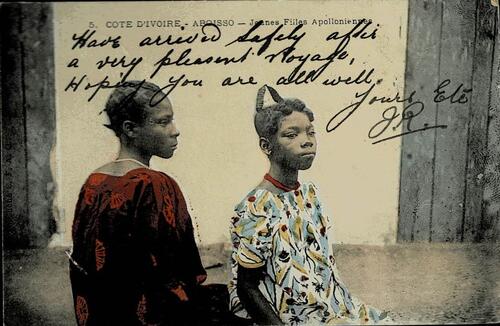 5. COTE D'IVOIRE - ABOISSO — Jeunes Filles Apolloniennes
Have arrived safely after
a very pleasant voyage,
Hoping you are all well.
Yours Etc
J.R.